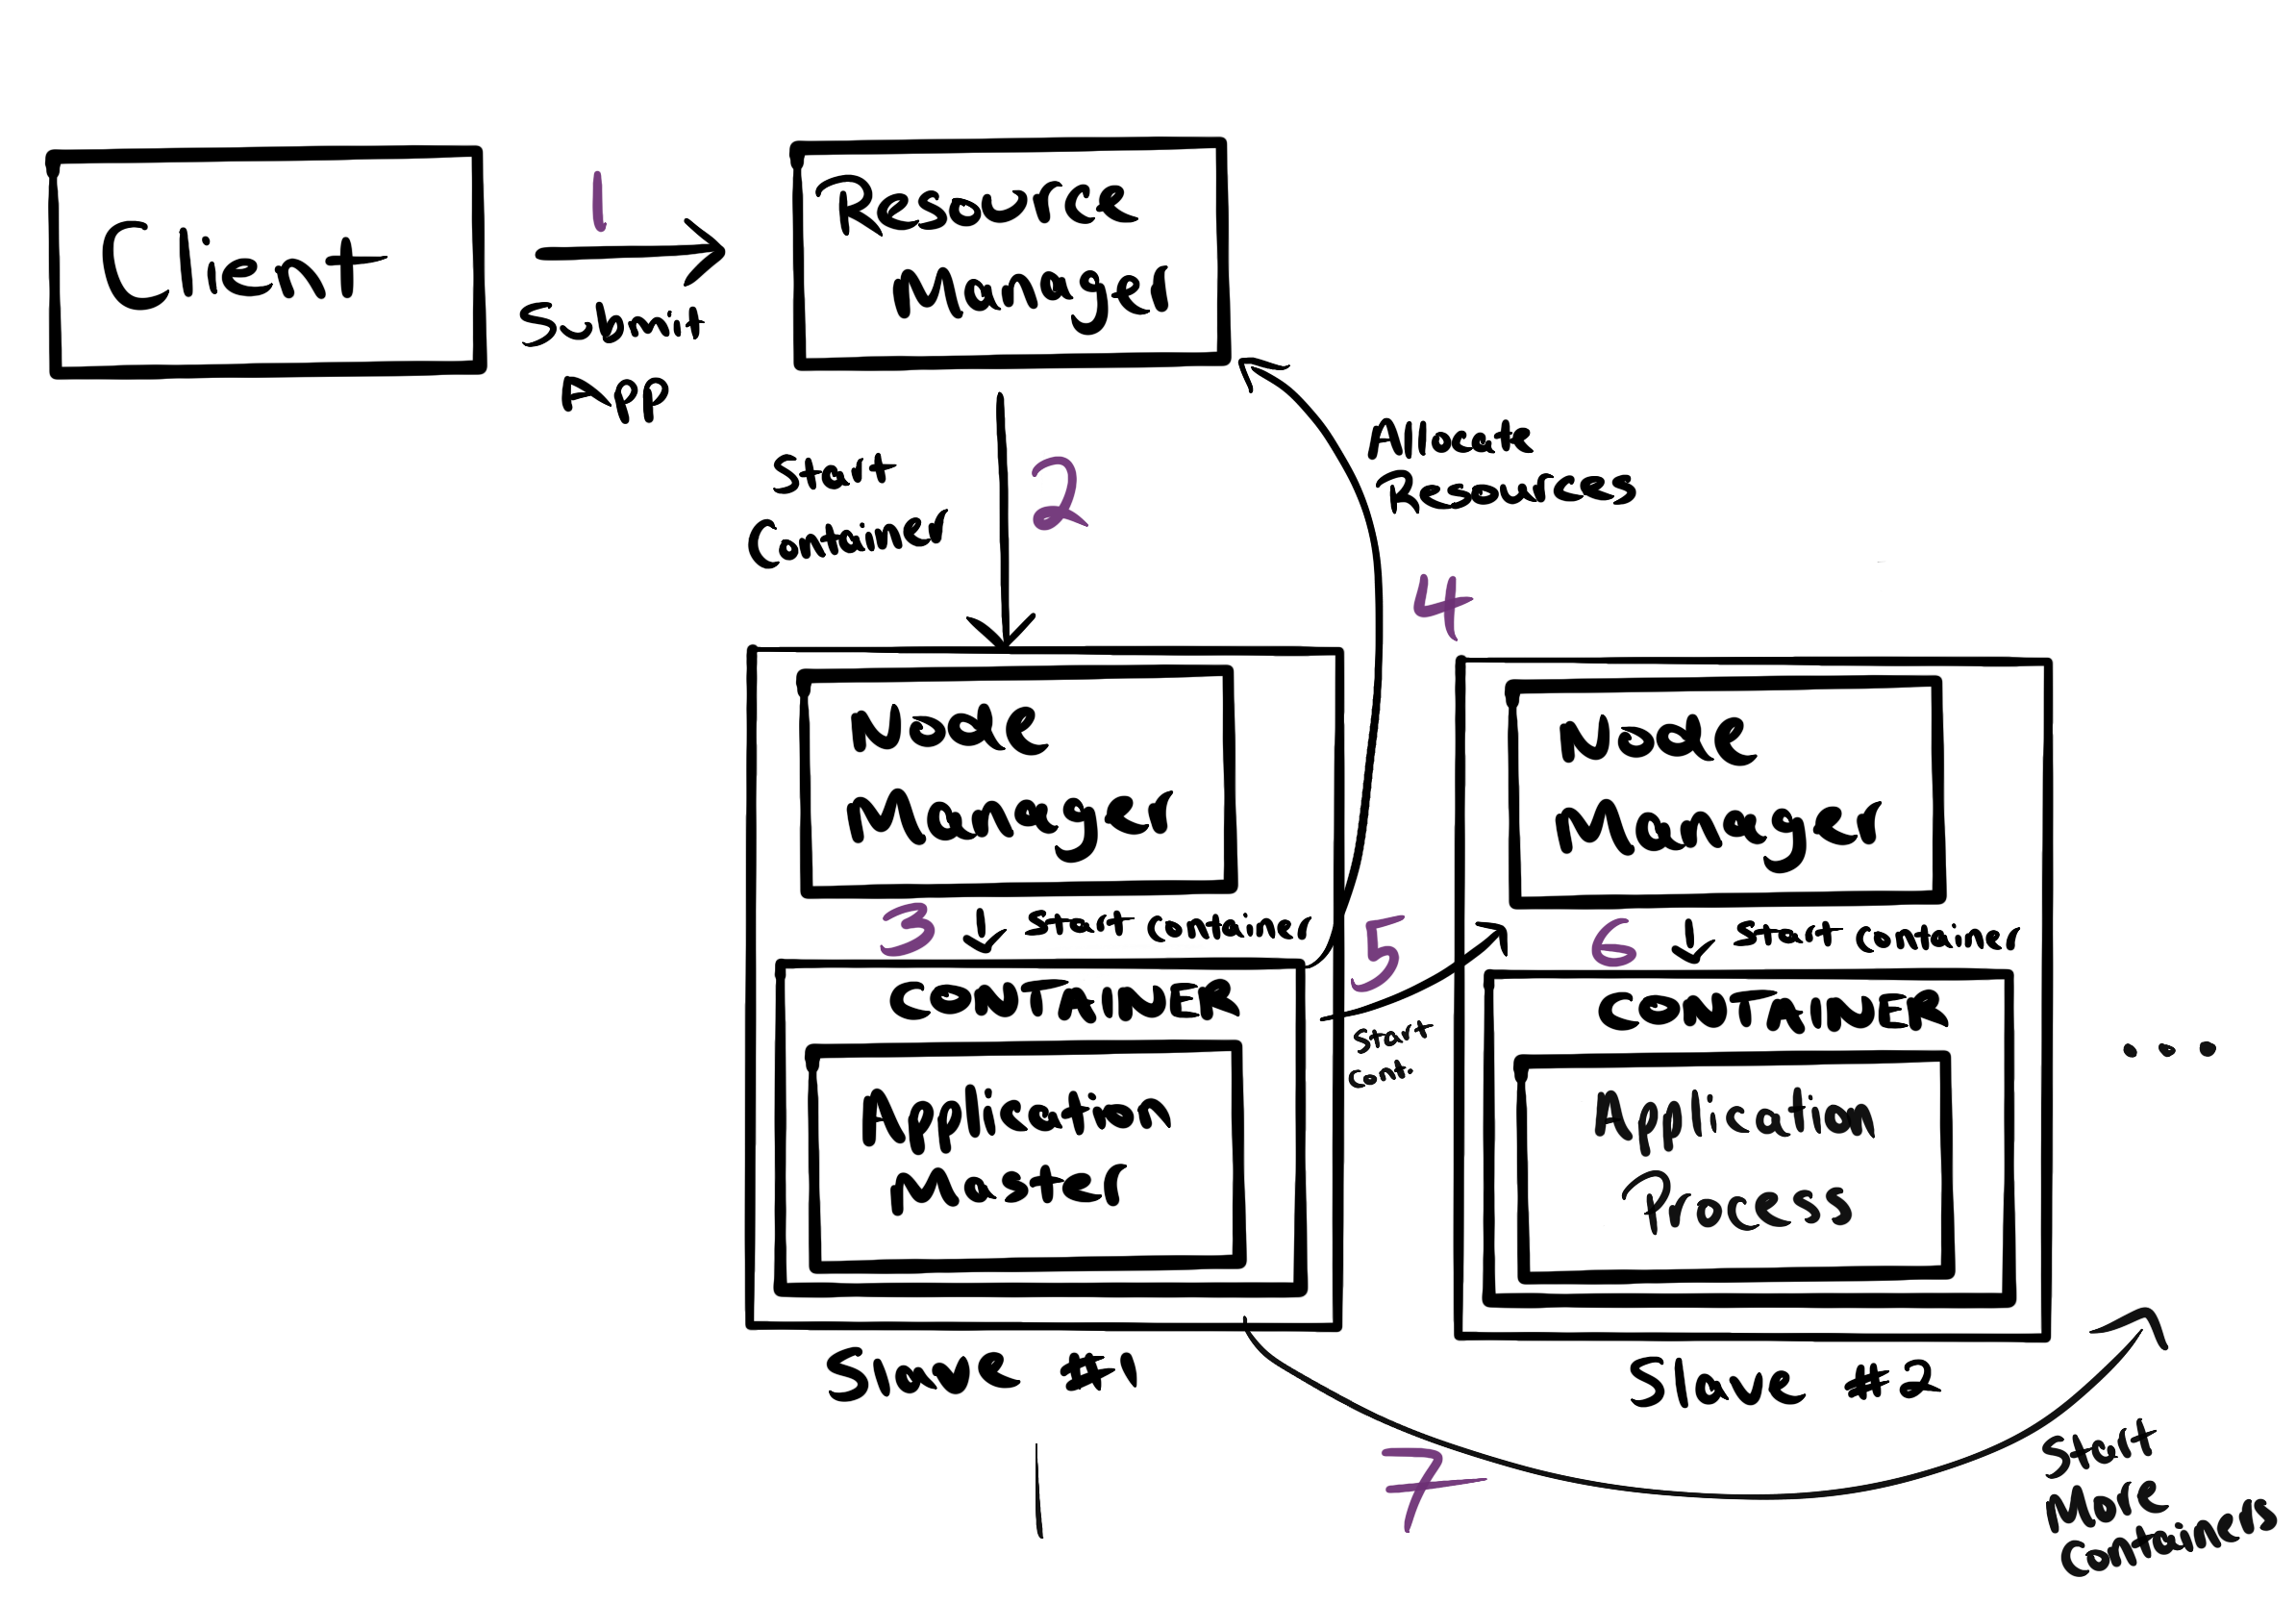 Client
1
Submit
App
Resource
Manager
Start
Container
2
Allocate
Resources
4
Node
Manager
3
Start Container
CONTAINER
Application
Master
Slave #1
5
Start
Cont.
Node
Manager
6
Start Container
CONTAINER
Application
Process
Slave #2
...
7
Start
More
Containers